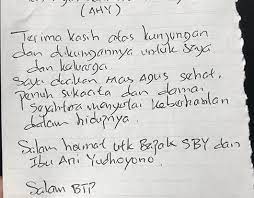 (AHY)
Terima kasih atas kunjungan
dan dukungannya untuk saya
dan keluarga.
Saya doakan Mas Agus sehat,
penuh sukacita dan damai
sejahtera menyertai keberhasilan
dalam hidupnya.
Salam hormat utk Bapak SBY dan
Ibu Ani Yudhoyono.
Salam BTP